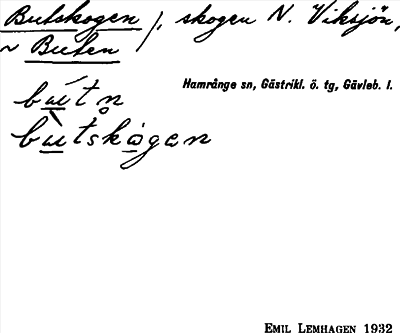 Butskogen /, skogen N. Viksjön,
~ Buten
Hamrånge sn, Gästrikl. ö. tg, Gävleb. l.
bú̲tn̥
bù̲tskå̲gən
EMIL LEMHAGEN 1932